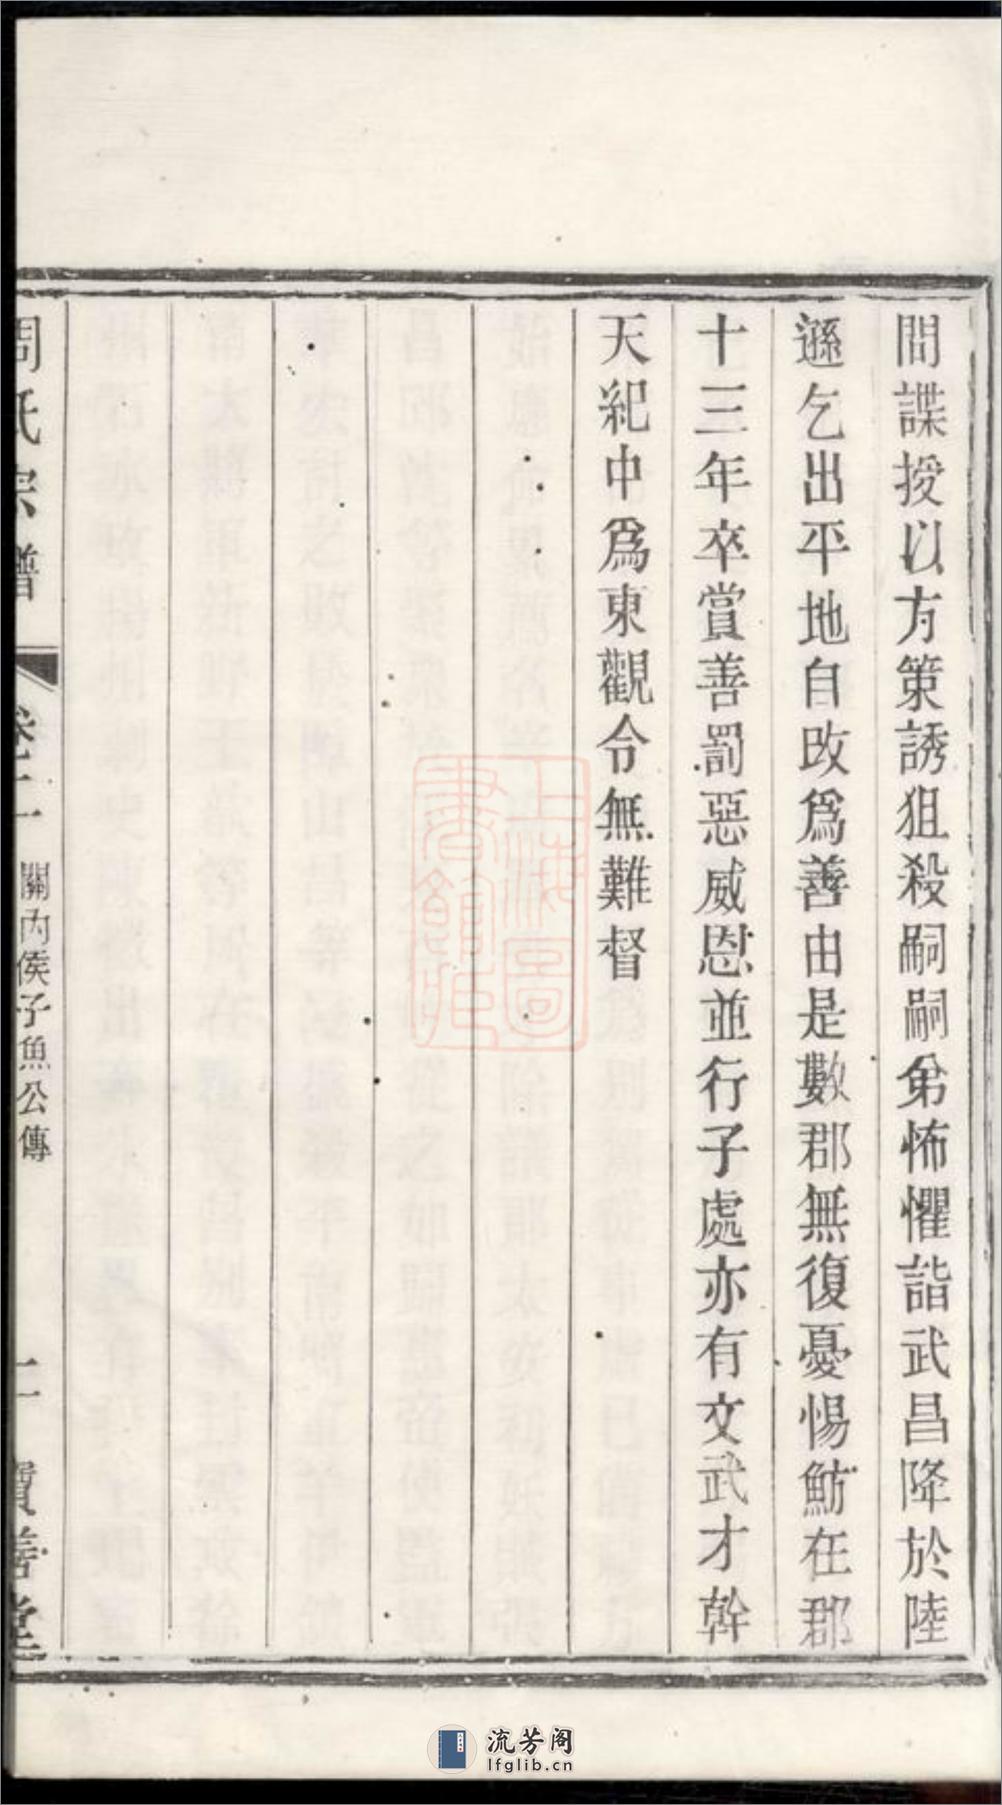 間諜授以方策誘狙殺嗣嗣弟怖懼詣武昌降於陸
遜乞出平地自改爲善由是數郡無復憂惕魴在郡
十三年卒賞善罰惡威恩並行子處亦有文武才幹
天紀中爲東觀令無難督
周氏宗譜
卷二
關內侯子魚公傳
二
寶善堂
上海圖書館藏
流芳阁
lfglib.cn